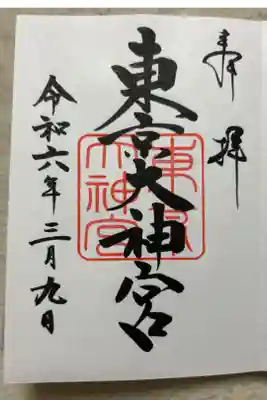 奉拝
東京大神宮
令和六年三月九日
東京大神宮